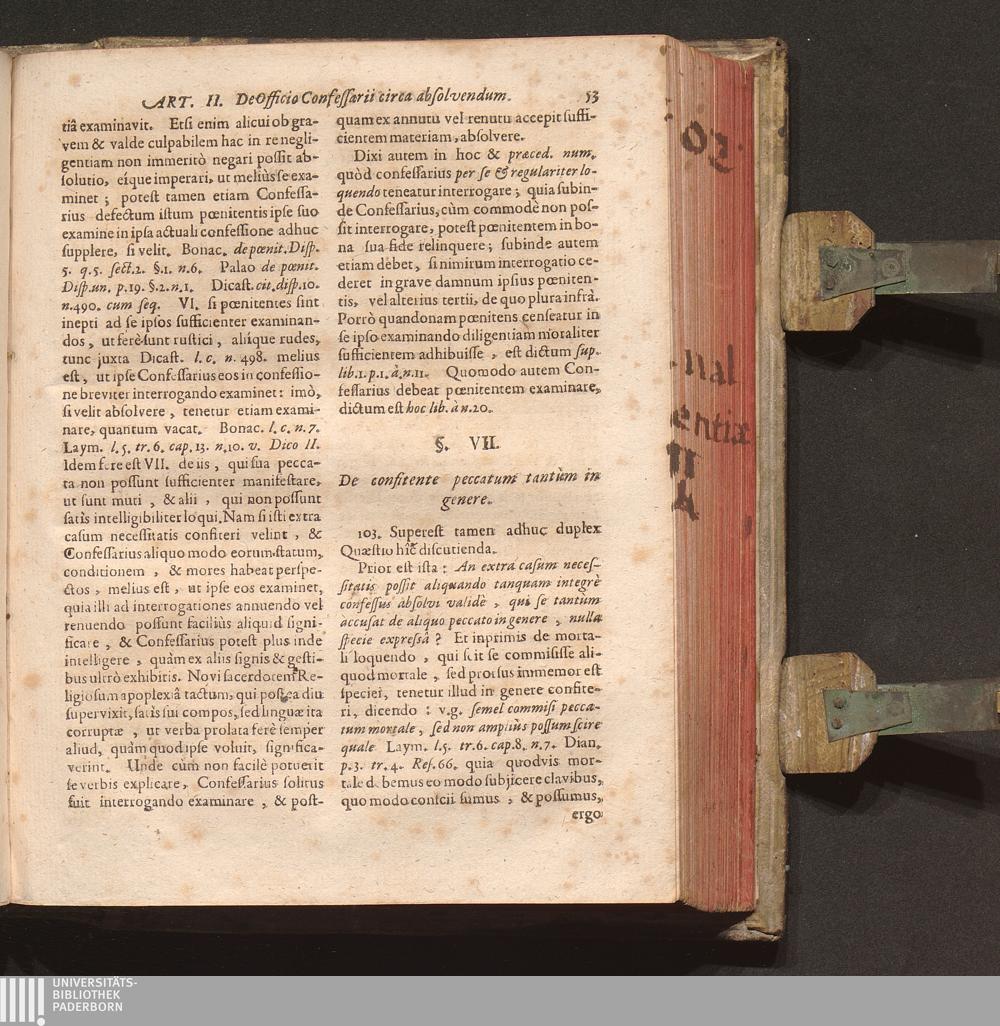 ART. II. De Officio Confessarii circa absolvendum. 53
tiâ examinavit. Etsi enim alicui ob gra-
vem & valde culpabilem hac in re negli-
gentiam non immeritò negari possit ab-
solutio, eíque imperari, ut meliùs se exa-
minet ; potest tamen etiam Confessa-
rius defectum istum pœnitentis ipse suo
examine in ipsa actuali confessione adhuc
supplere, si velit. Bonac. de pœnit. Disp.
5. q.5. sect.2. §.1. n.6. Palao de pœnit.
Disp.un. p.19. §.2.n.1. Dicast. cit.disp.10.
n.490. cum seq. VI. si pœnitentes sint
inepti ad se ipsos sufficienter examinan-
dos, ut ferè sunt rustici, aliíque rudes,
tunc juxta Dicast. l. c. n. 498. melius
est, ut ipse Confessarius eos in confessio-
ne breviter interrogando examinet: imò,
si velit absolvere, tenetur etiam exami-
nare, quantum vacat. Bonac. l. c. n. 7.
Laym. l.5. tr.6. cap.13. n.10. v. Dico II.
Idem fere est VII. de iis, qui sua pecca-
ta non possunt sufficienter manifestare,
ut sunt muti, & alii, qui non possunt
satis intelligibiliter loqui. Nam si isti extra
casum necessitatis confiteri velint, &
Confessarius aliquo modo eorum statum,
conditionem, & mores habeat perspe-
ctos, melius est, ut ipse eos examinet,
quia illi ad interrogationes annuendo vel
renuendo possunt faciliùs aliquid signi-
ficare, & Confessarius potest plus inde
intelligere, quàm ex aliis signis & gesti-
bus ultrò exhibitis. Novi sacerdotem Re-
ligiosum apoplexiâ tactum, qui postea diu
supervixit, satis sui compos, sed linguæ ita
corruptæ, ut verba prolata ferè semper
aliud, quàm quod ipse voluit, significa-
verint. Unde cùm non facilè potuerit
se verbis explicare, Confessarius solitus
fuit interrogando examinare, & post-
quam ex annutu vel renutu accepit suffi-
cientem materiam, absolvere.
Dixi autem in hoc & præced. num.
quòd confessarius per se & regulariter lo-
quendo teneatur interrogare ; quia subin-
de Confessarius, cùm commodè non pos-
sit interrogare, potest pœnitentem in bo-
na sua fide relinquere ; subinde autem
etiam debet, si nimirum interrogatio ce-
deret in grave damnum ipsius pœniten-
tis, vel alterius tertii, de quo plura infrà.
Porrò quandonam pœnitens censeatur in
se ipso examinando diligentiam moraliter
sufficientem adhibuisse, est dictum sup.
lib.1.p.1. à.n.11. Quomodo autem Con-
fessarius debeat pœnitentem examinare,
dictum est hoc lib. à n.20.
§. VII.
De confitente peccatum tantùm in
genere.
103. Superest tamen adhuc duplex
Quæstio hîc discutienda.
Prior est ista : An extra casum neces-
sitatis possit aliquando tanquam integrè
confessus absolvi validè, qui se tantùm
accusat de aliquo peccato in genere, nulla
specie expressâ? Et inprimis de morta-
li loquendo, qui scit se commisisse ali-
quod mortale, sed prorsus immemor est
speciei, tenetur illud in genere confite-
ri, dicendo : v.g. semel commisi pecca-
tum mortale, sed non ampliùs possum scire
quale Laym. l.5. tr.6. cap.8. n.7. Dian.
p.3. tr.4. Res.66. quia quodvis mor-
tale debemus eo modo subjicere clavibus,
quo modo conscii sumus, & possumus,
ergo
03.
nal
entiæ
II
A
UNIVERSITÄTS-
BIBLIOTHEK
PADERBORN